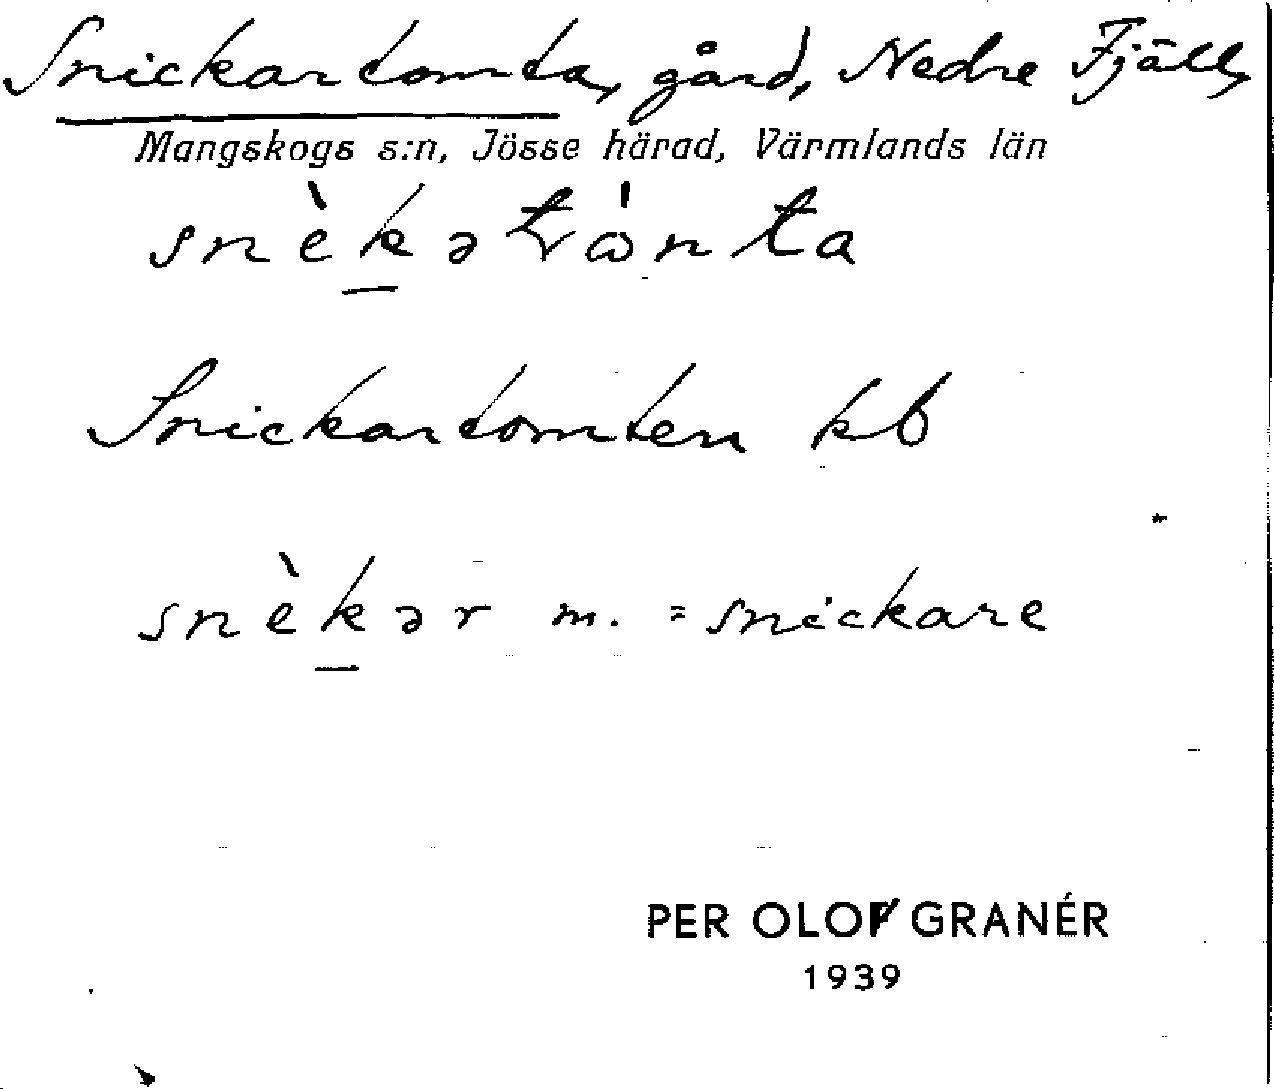 Snickartomta, gård, Nedre Fjäll,
Mangskogs s:n, Jösse härad, Värmlands län
snèkətω̇nta
Snickartomten kb
snèkər m. = snickare
PER OLOF GRANÉR
1939